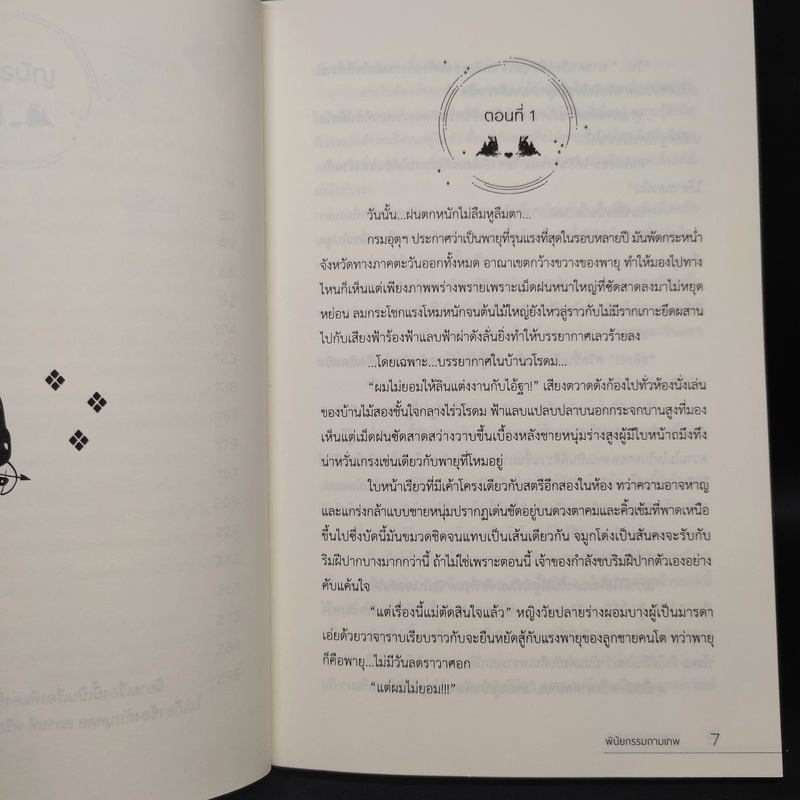 ตอนที่ 1
วันนั้น...ฝนตกหนักไม่ลืมหูลืมตา...
กรมอุตุฯ ประกาศว่าเป็นพายุที่รุนแรงที่สุดในรอบหลายปี มันพัดกระหน่ำ
จังหวัดทางภาคตะวันออกทั้งหมด อาณาเขตกว้างขวางของพายุ ทำให้มองไปทาง
ไหนก็เห็นแต่เพียงภาพพร่างพรายเพราะเม็ดฝนหนาใหญ่ที่ซัดสาดลงมาไม่หยุด
หย่อน ลมกระโชกแรงโหมหนักจนต้นไม้ใหญ่ยังไหวลู่ราวกับไม่มีรากเกาะยึดผสาน
ไปกับเสียงฟ้าร้องฟ้าแลบฟ้าผ่าดังลั่นยิ่งทำให้บรรยากาศเลวร้ายลง
...โดยเฉพาะ...บรรยากาศในบ้านวโรดม...
“ผมไม่ยอมให้ลินแต่งงานกับไอ้ฐา!” เสียงตวาดดังก้องไปทั่วห้องนั่งเล่น
ของบ้านไม้สองชั้นใจกลางไร่วโรดม ฟ้าแลบแปลบปลาบนอกกระจกบานสูงที่มอง
เห็นแต่เม็ดฝนซัดสาดสว่างวาบขึ้นเบื้องหลังชายหนุ่มร่างสูงผู้มีใบหน้าถมึงทึง
น่าหวั่นเกรงเช่นเดียวกับพายุที่โหมอยู่
ใบหน้าเรียวที่มีเค้าโครงเดียวกับสตรีอีกสองในห้อง ทว่าความอาจหาญ
และแกร่งกล้าแบบชายหนุ่มปรากฏเด่นชัดอยู่บนดวงตาคมและคิ้วเข้มที่พาดเหนือ
ขึ้นไปซึ่งบัดนี้มันขมวดชิดจนแทบเป็นเส้นเดียวกัน จมูกโด่งเป็นสันคงจะรับกับ
ริมฝีปากบางมากกว่านี้ ถ้าไม่ใช่เพราะตอนนี้ เจ้าของกำลังขบริมฝีปากตัวเองอย่าง
คับแค้นใจ
“แต่เรื่องนี้แม่ตัดสินใจแล้ว” หญิงวัยปลายร่างผอมบางผู้เป็นมารดา
เอ่ยด้วยวาจาราบเรียบราวกับจะยืนหยัดสู้กับแรงพายุของลูกชายคนโต ทว่าพายุ
ก็คือพายุ...ไม่มีวันลดราวาศอก
“แต่ผมไม่ยอม!!!”
พินัยกรรมกามเทพ 7